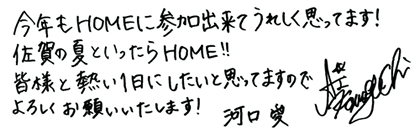 今年もHOMEに参加出来てうれしく思ってます!
佐賀の夏といったらHOME!!
皆様と熱い1日にしたいと思ってますので
よろしくお願いいたします!
河口